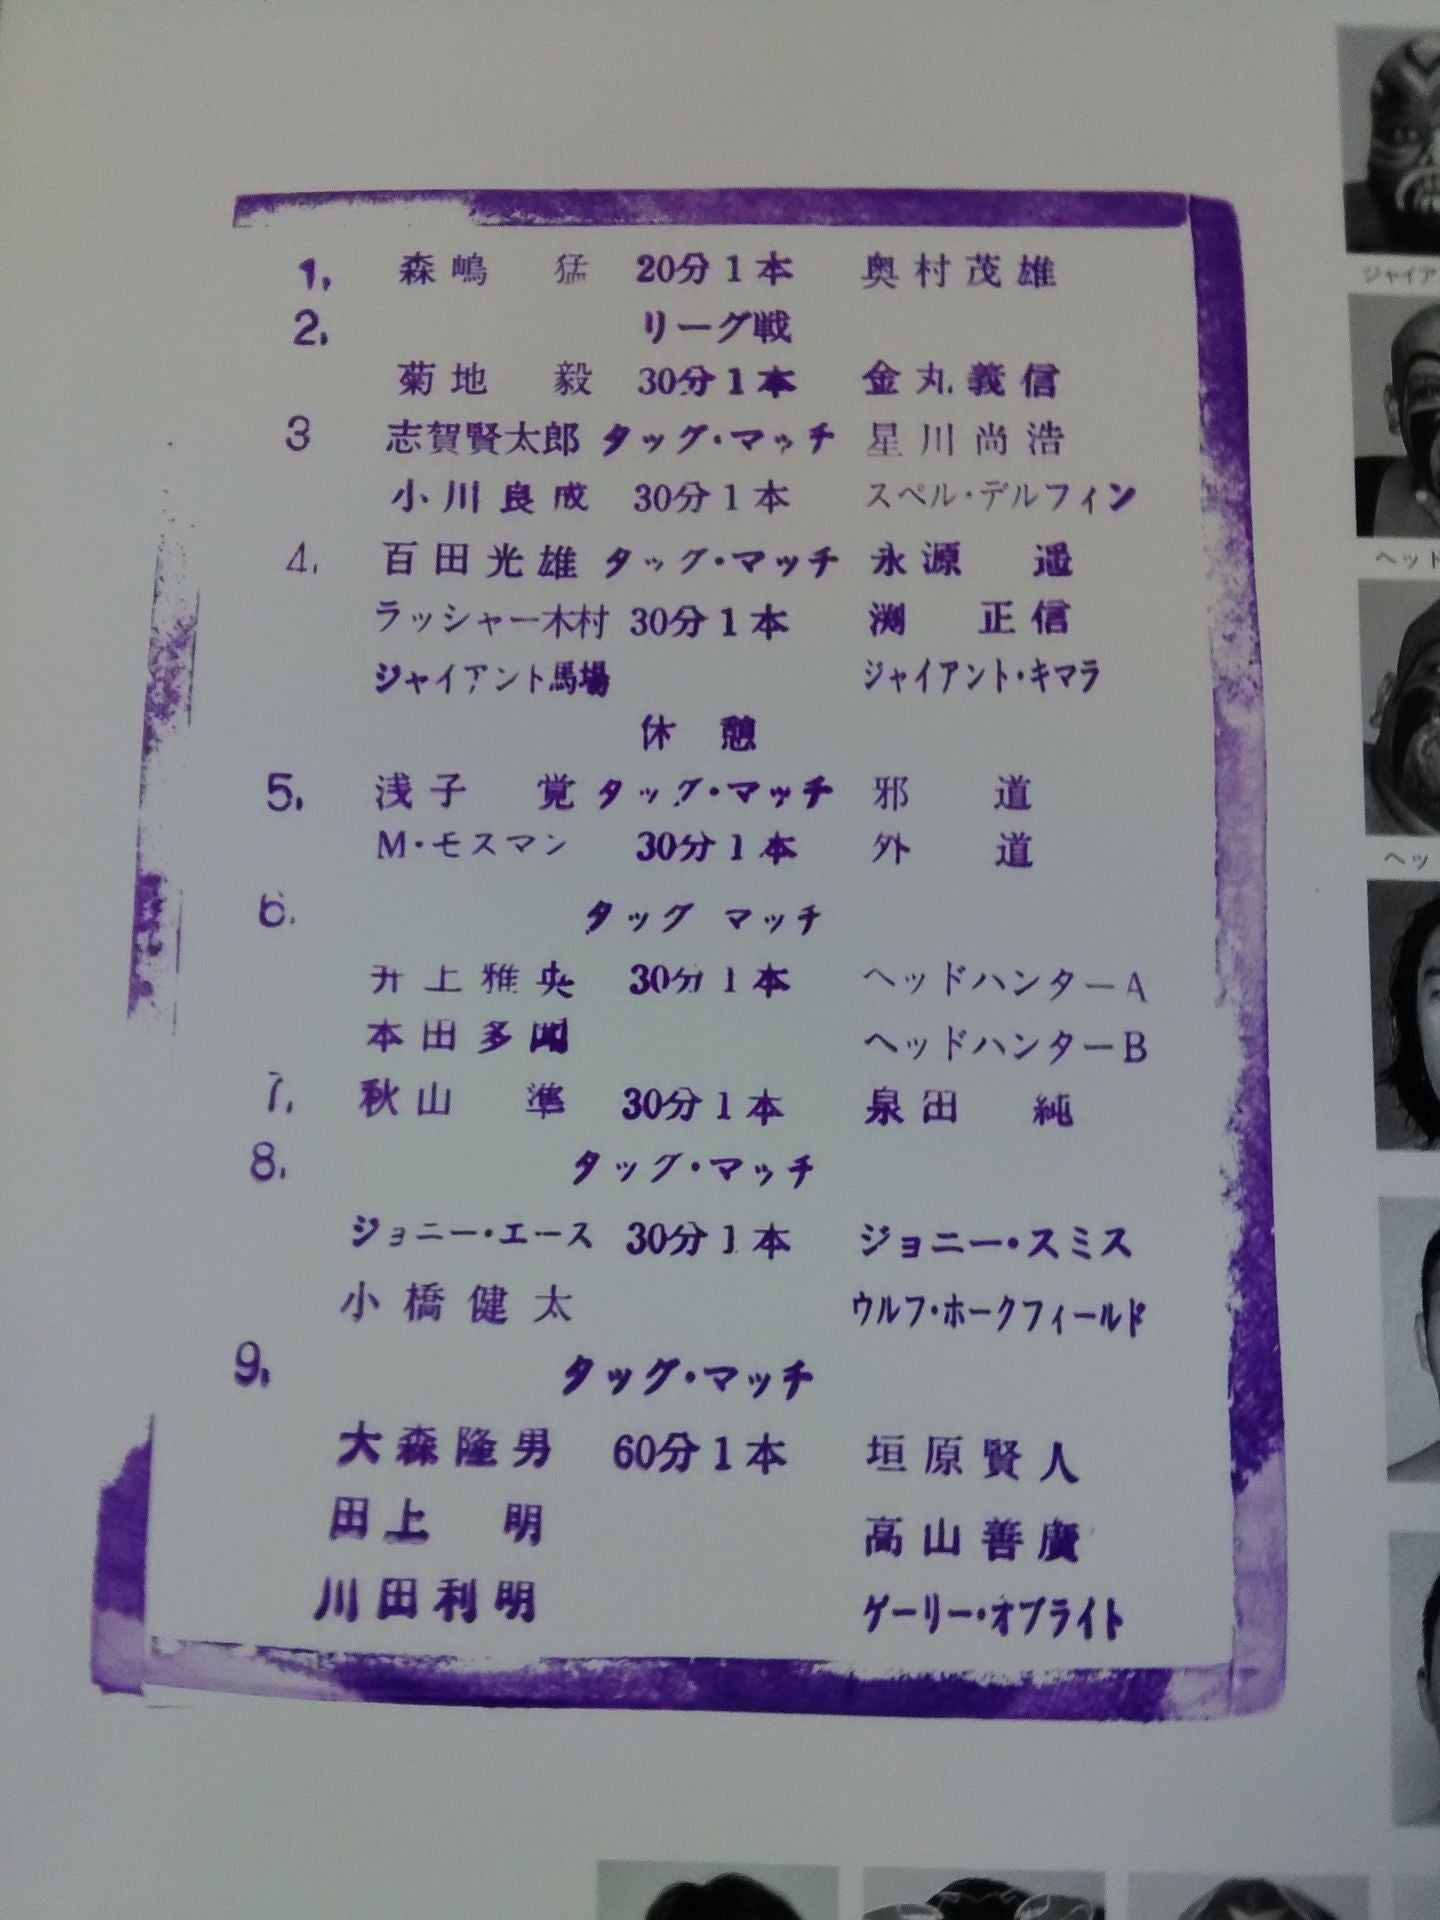 1. 森嶋 猛 20分1本 奥村茂雄
2. リーグ戦
菊地 毅 30分1本 金丸義信
3 志賀賢太郎 タッグ・マッチ 星川尚浩
小川良成 30分1本 スペル・デルフィン
4. 百田光雄 タッグ・マッチ 永源 遥
ラッシャー木村 30分1本 渕 正信
ジャイアント馬場 ジャイアント・キマラ
休憩
5. 浅子 覚 タッグ・マッチ 邪道
M・モスマン 30分1本 外道
6. タッグ マッチ
井上雅央 30分1本 ヘッドハンターA
本田多聞 ヘッドハンターB
7. 秋山 準 30分1本 泉田 純
8. タッグ・マッチ
ジョニー・エース 30分1本 ジョニー・スミス
小橋健太 ウルフ・ホークフィールド
9. タッグ・マッチ
大森隆男 60分1本 垣原賢人
田上 明 高山善廣
川田利明 ゲーリー・オブライト
ジャイア
ヘッド
ヘッ